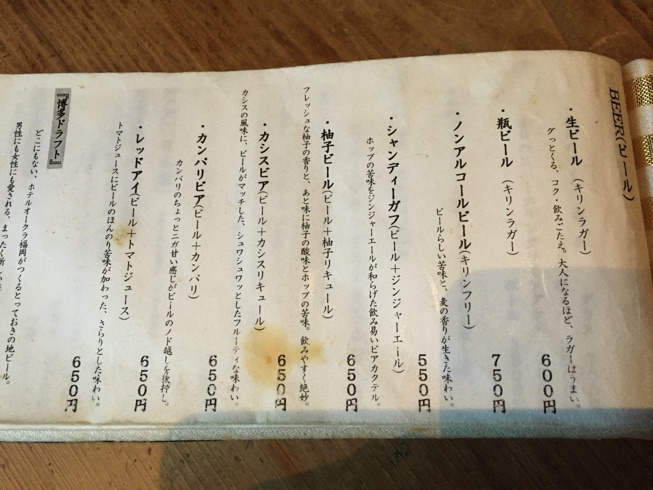 BEER(ビール)
・生ビール (キリンラガー) 600円
グっとくる、コク・飲みごたえ。大人になるほど、ラガーはうまい。
・瓶ビール (キリンラガー) 750円
・ノンアルコールビール(キリンフリー) 550円
ビールらしい苦味と、麦の香りが生きた味わい。
・シャンディーガフ(ビール+ジンジャーエール) 650円
ホップの苦味をジンジャーエールが和らげた飲み易いビアカクテル。
・柚子ビール(ビール+柚子リキュール) 650円
フレッシュな柚子の香りと、あと味に柚子の酸味とホップの苦味。飲みやすく絶妙。
・カシスビア(ビール+カシスリキュール) 650円
カシスの風味に、ビールがマッチした、シュワシュワッとしたフルーティな味わい。
・カンパリビア(ビール+カンパリ) 650円
カンパリのちょっとニガ甘い感じがビールのノド越しを後押し。
・レッドアイ(ビール+トマトジュース) 650円
トマトジュースにビールのほんのり苦味が加わった、さらりとした味わい。
『博多ドラフト』
どこにもない、ホテルオークラ福岡がつくるとっておきの地ビール。
男性にも女性にも愛される、まったく新しい